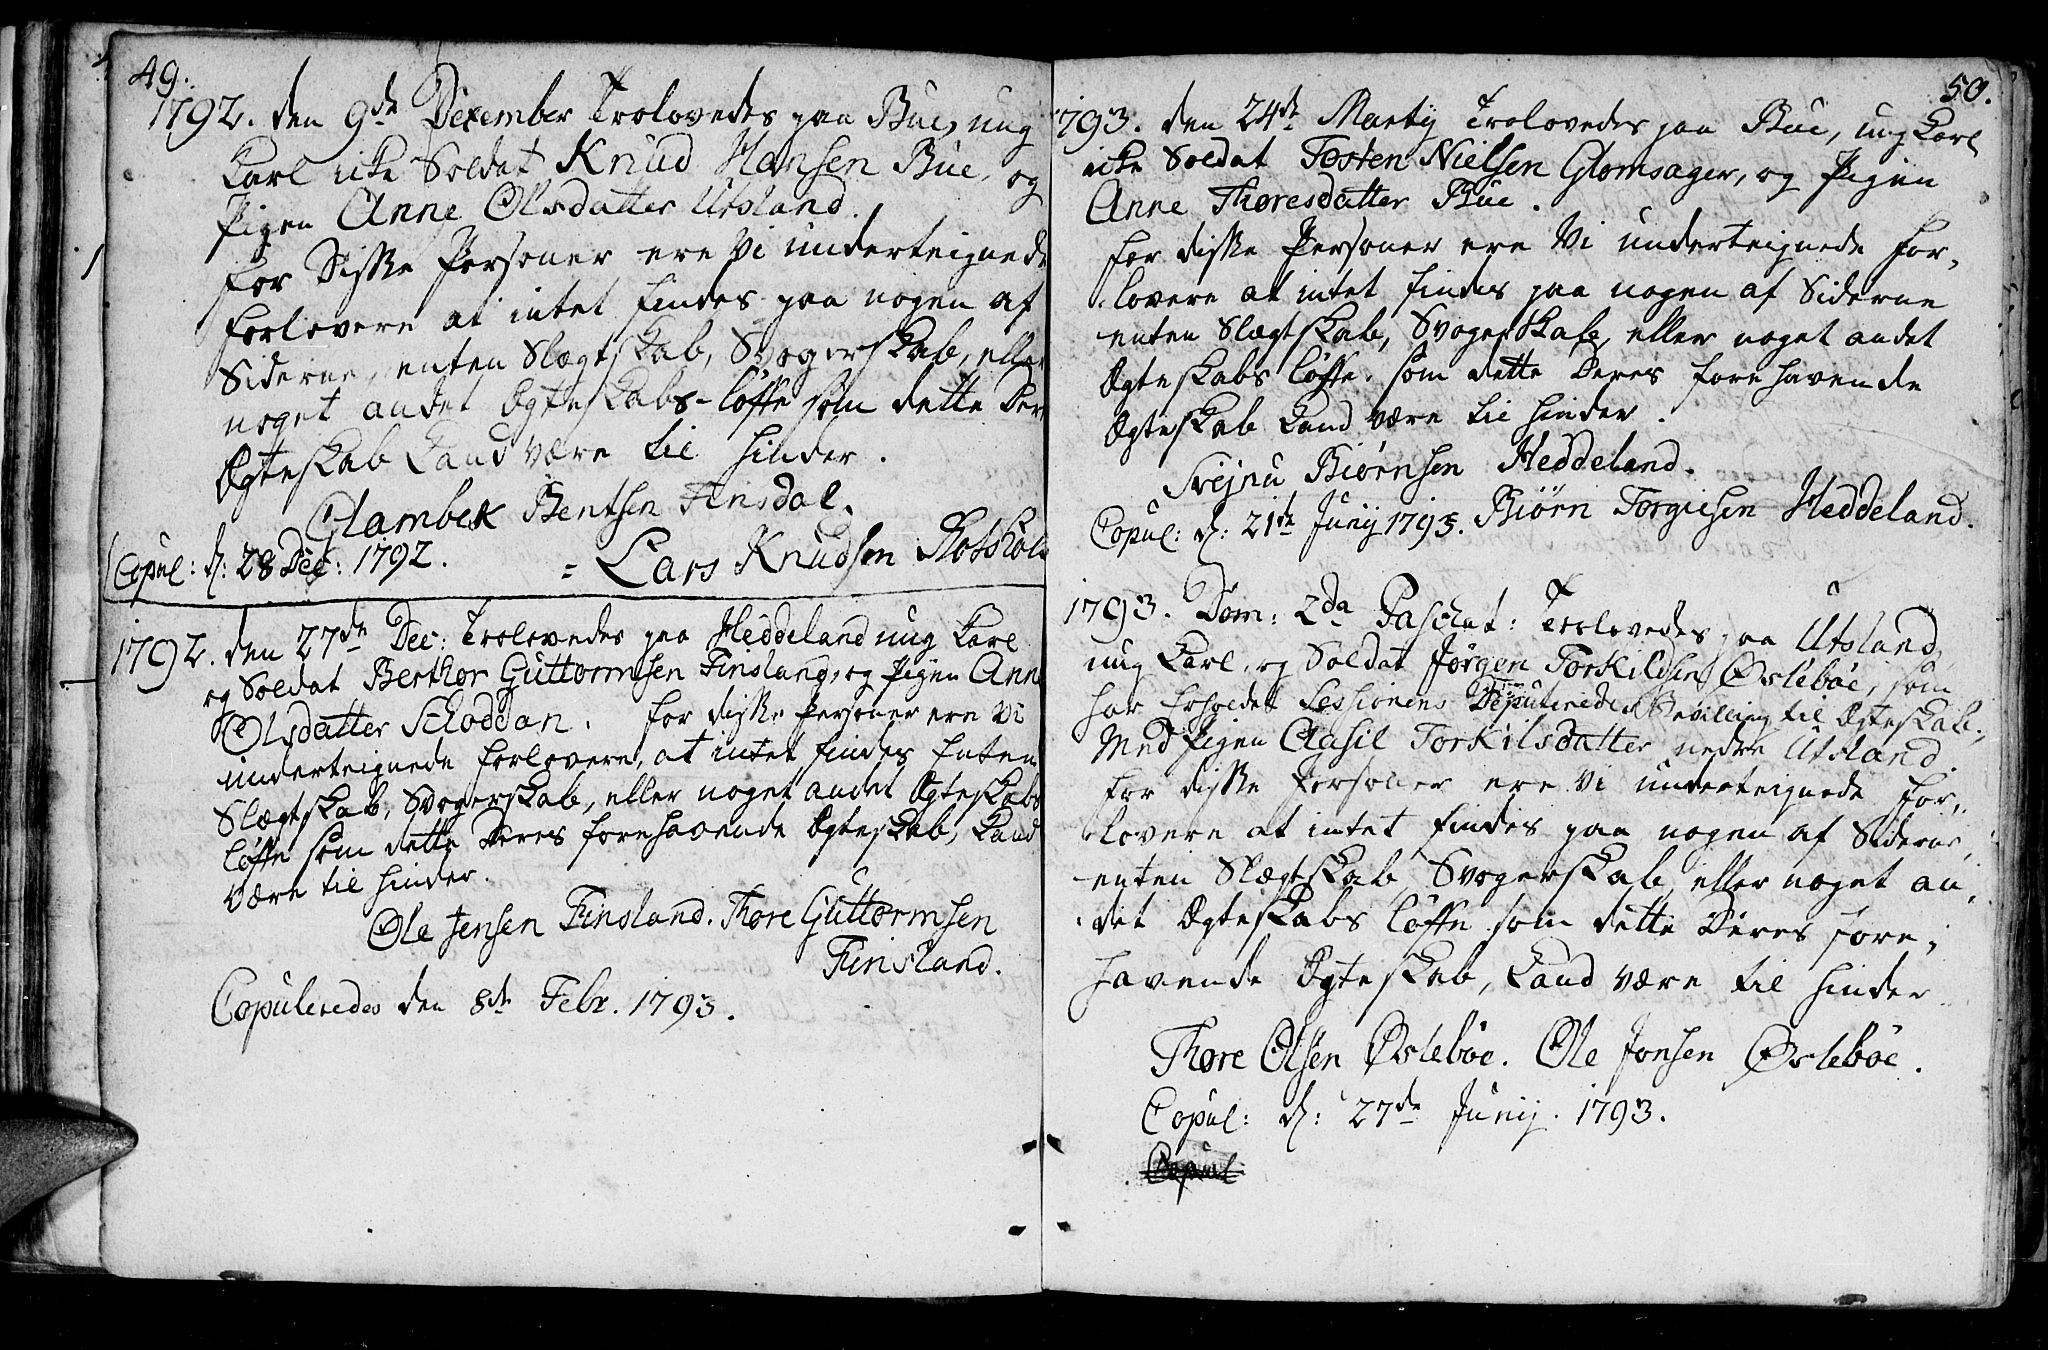 49.
1792. den 9de December Trolovedes paa Bue, ung
Karl icke Soldat Knud Hansen Bue, og
Pigen Anne Olsdatter Utsland.
For Disse Personer ere Vi underteignede
Forlovere at intet findes paa nogen af
Siderne, enten Slægtskab, Svogerskab, eller
noget andet Ægteskabs-løffte som dette Der
Ægteskab kand være til hinder.
Clambek Bentsen Finsdal.
Copul: d: 28 Dec: 1792. = Lars Knudsen
1792. den 27de Dec: Trolovedes paa Heddeland ung Karl
og Soldat Berthor Guttormsen Finsland, og Pigen Anne
Olsdatter Schoddan. For disse Personer ere Vi
underteignede Forlovere, at intet findes Enten
Slægtskab, Svogerskab, eller noget andet Ægteskabs
løffte som dette Deres forehavende Ægteskab, kand
være til hinder.
Ole Jensen Finsland. Thore Guttormsen
Finsland.
Copuleredes den 8de Febr. 1793.
50.
1793. den 24de Martij Trolovedes paa Bue, ung Karl
icke Soldat Tosten Nielsen Glomsager, og Pigen
Anne Thoresdatter Bue.
For disse Personer ere Vi underteignede For,
lovere at intet findes paa nogen af Siderne
enten Slægtskab, Svogerskab, eller noget andet
Ægteskabs løffte, som dette Deres forehavende
Ægteskab kand være til hinder.
Svejnu Biørnsen Heddeland.
Copul: d: 21de Junij 1793. Biørn Torgiesen Heddeland.
1793. Dom: 2da Paschat: Trolovedes paa Utsland,
ung Karl, og Soldat Jørgen Torkildsen Øslebøe, som
har Erholdet Sessionens Deputeredes Bevilling til Ægteskab,
Med Pigen Aasil Torkilsdatter nedre Utsland.
For disse Personer ere Vi underteignede For,
lovere at intet findes paa nogen af Siderne,
enten Slægtskab, Svogerskab, eller noget an,
det Ægteskabs løffte som dette Deres fore,
havende Ægteskab, kand være til hinder.
Thore Olsen Øslebøe. Ole Jonsen Øslebøe.
Copul: d: 27de Junij. 1793.
Copul